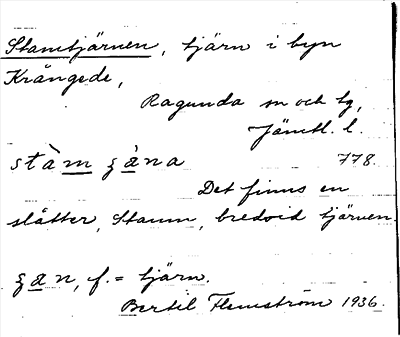 Stamtjärnen, tjärn i byn
Krångede,
Ragunda sn och tg,
Jämtl. l.
stàm ʒäna 778.
Det finns en
slåtter, Stamm, bredvid tjärnen.
ʒän, f. = tjärn.
Bertil Flemström 1936.